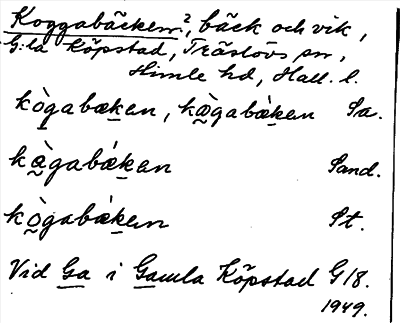 Koggabäcken?, bäck och vik,
G:la Köpstad, Träslövs sn,
Himle hd, Hall. l.
kògabæken, kæ̀gabæ̀ken Sa.
kæ̀gabæ̀ken Sand.
kògabæ̀ken St.
Vid Ga i Gamla Köpstad G18.
1949.